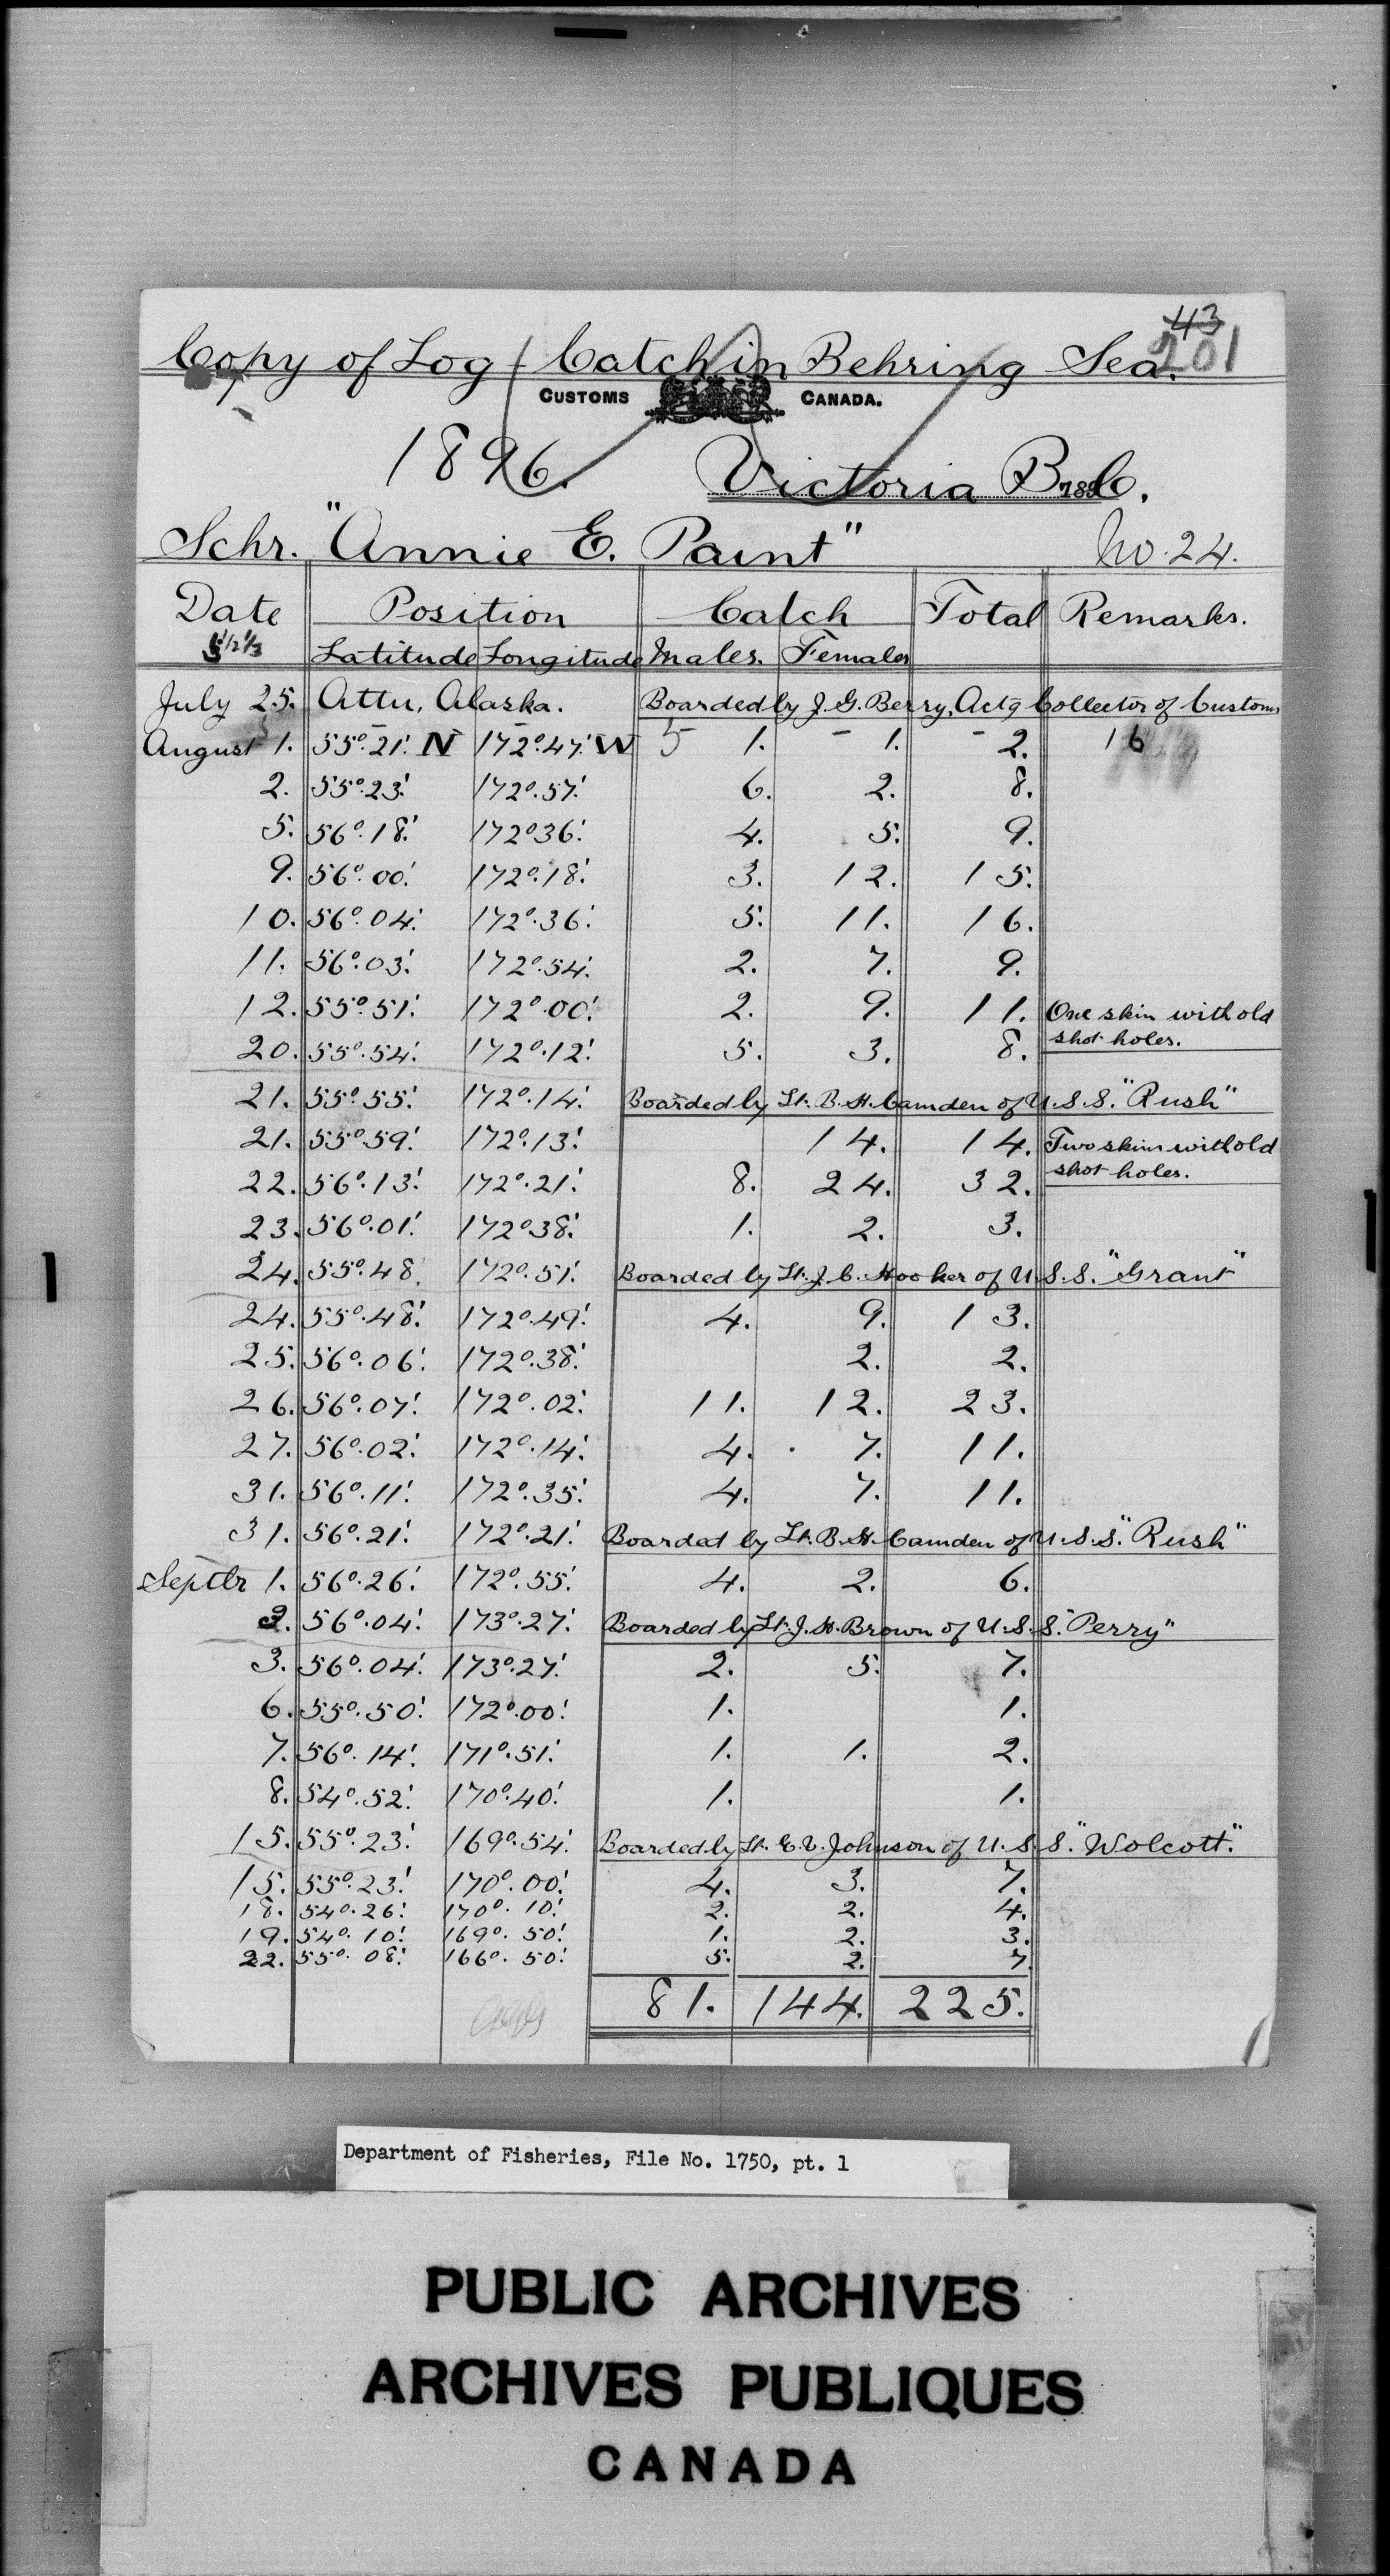 43
201
Copy of Log / Catch in Behring Sea.
CUSTOMS CANADA.
1896. Victoria B.C. 189
Schr. "Annie E. Paint" No. 24.
Date Position Catch Total Remarks.
Latitude Longitude Males. Females
July 25. Attu, Alaska. Boarded by J. G. Berry, Actg Collector of Customs
August 1. 55°.21'. N 172°.47'. W 5 1. - 1. - 2. 16
2. 55°.23'. 172°.57'. 6. 2. 8.
5. 56°.18'. 172°36'. 4. 5. 9.
9. 56°.00'. 172°.18'. 3. 12. 15.
10. 56°.04'. 172°.36'. 5. 11. 16.
11. 56°.03'. 172°.54'. 2. 7. 9.
12. 55°.51'. 172°.00'. 2. 9. 11. One skin with old
20. 55°.54'. 172°.12'. 5. 3. 8. shot holes.
21. 55°.55'. 172°.14'. Boarded by Lt. B. H. Camden of U.S.S. "Rush"
21. 55°.59'. 172°.13'. 14. 14. Two skins with old
22. 56°.13'. 172°.21'. 8. 24. 32. shot holes.
23. 56°.01'. 172°38'. 1. 2. 3.
24. 55°.48. 172°.51'. Boarded by Lt. J. C. Hooker of U.S.S. "Grant"
24. 55°.48'. 172°.49'. 4. 9. 13.
25. 56°.06'. 172°.38'. 2. 2.
26. 56°.07'. 172°.02'. 11. 12. 23.
27. 56°.02'. 172°.14'. 4. 7. 11.
31. 56°.11'. 172°.35'. 4. 7. 11.
31. 56°.21'. 172°.21'. Boarded by Lt. B. H. Camden of U.S.S. "Rush"
Septbr 1. 56°.26'. 172°.55'. 4. 2. 6.
2. 56°.04'. 173°.27'. Boarded by Lt. J. H. Brown of U.S.S. "Perry"
3. 56°.04'. 173°.27'. 2. 5. 7.
6. 55°.50'. 172°.00'. 1. 1.
7. 56°.14'. 171°.51'. 1. 1. 2.
8. 54°.52'. 170°.40'. 1. 1.
15. 55°.23'. 169°.54'. Boarded by Lt. E. V. Johnson of U.S.S. "Wolcott."
15. 55°.23'. 170°.00'. 4. 3. 7.
18. 54°.26'. 170°.10'. 2. 2. 4.
19. 54°.10'. 169°.50'. 1. 2. 3.
22. 55°.08'. 166°.50'. 5. 2. 7.
81. 144. 225.
Department of Fisheries, File No. 1750, pt. 1
PUBLIC ARCHIVES
ARCHIVES PUBLIQUES
CANADA